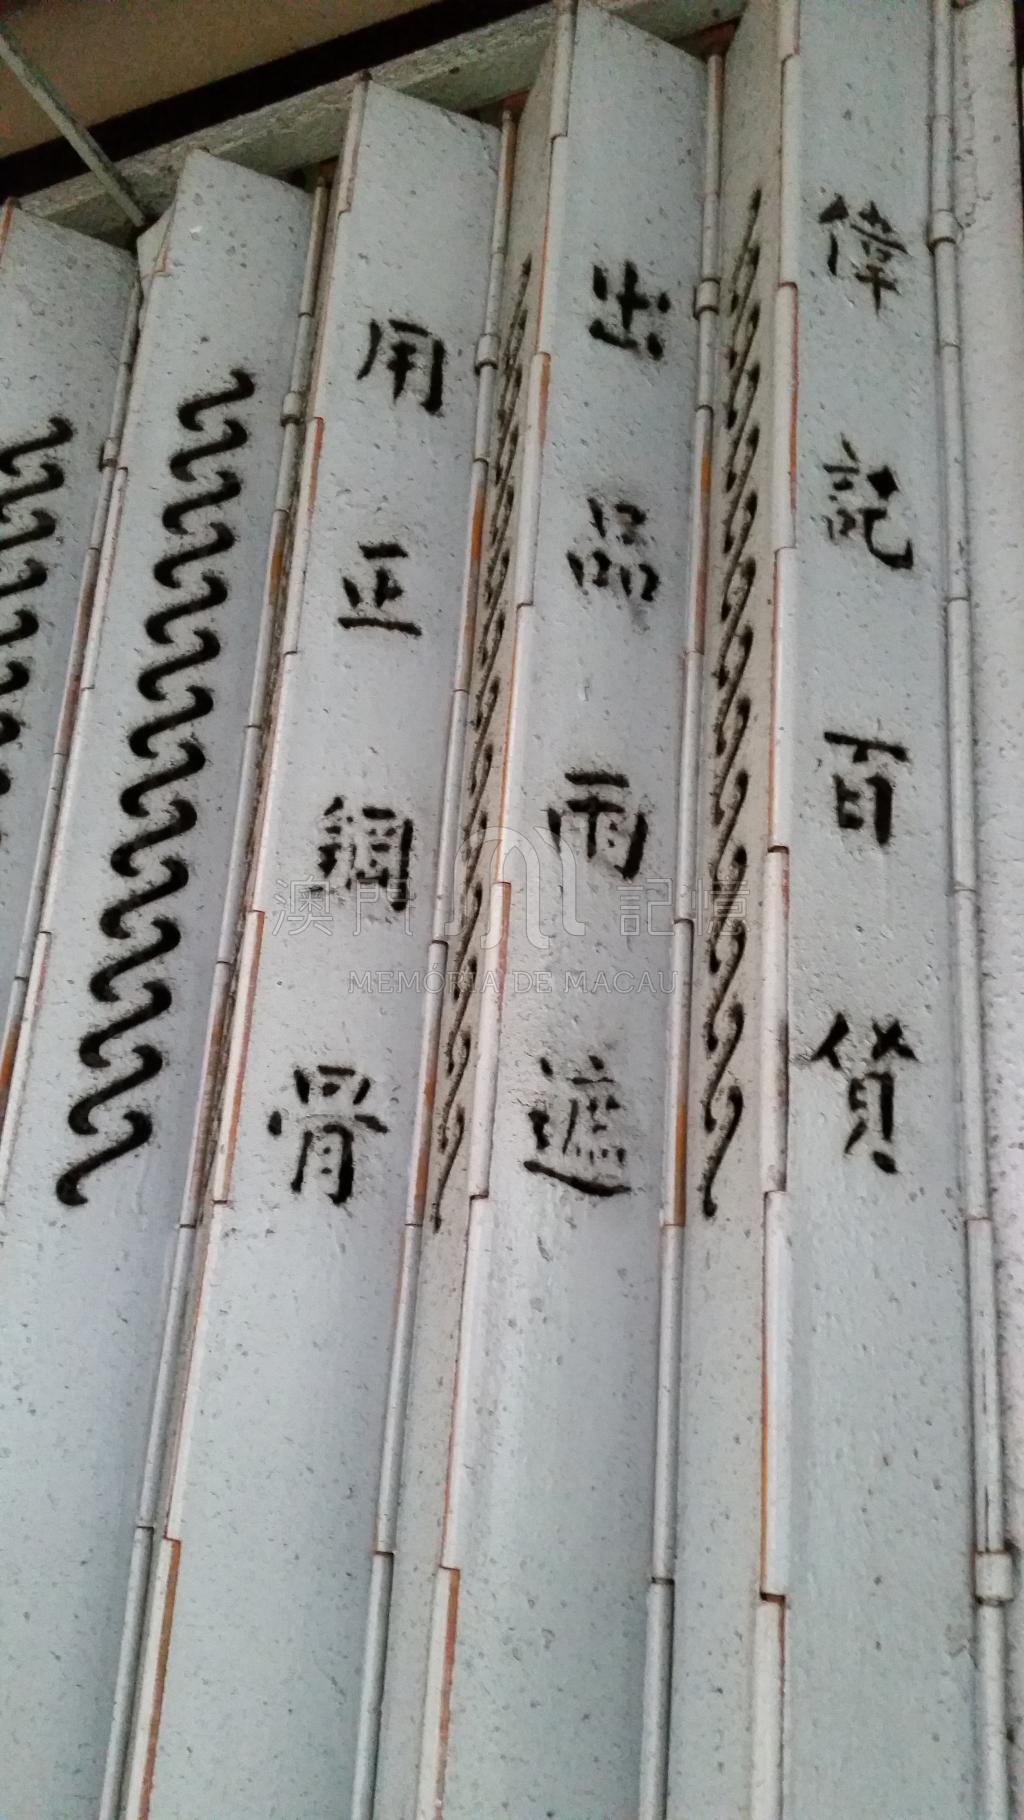 偉記百貨
出品雨遮
用正鋼骨
澳門記憶
MEMÓRIA DE MACAU